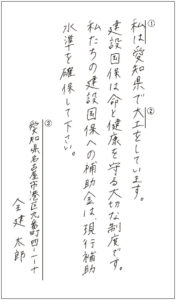 ①
私は愛知県で大工をしています。
建設国保は命・健康を守る大切な制度です。
私たちの建設国保への補助金は、現行補助
水準を確保して下さい。
②
愛知県名古屋市港区九番町四-一-十
全建太郎